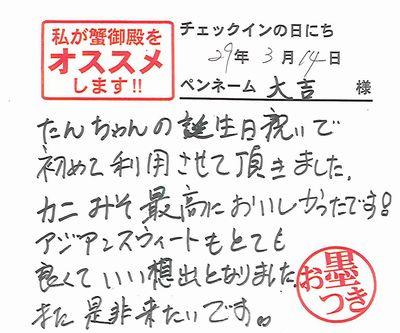 私が蟹御殿を
オススメ
します!!
チェックインの日にち
29年 3月 14日
ペンネーム 大吉 様
たんちゃんの誕生日祝いで
初めて利用させて頂きました。
カニみそ最高においしかったです!
アジアンスウィートもとても
良くていい想出となりました。
また是非来たいです。
お墨つき